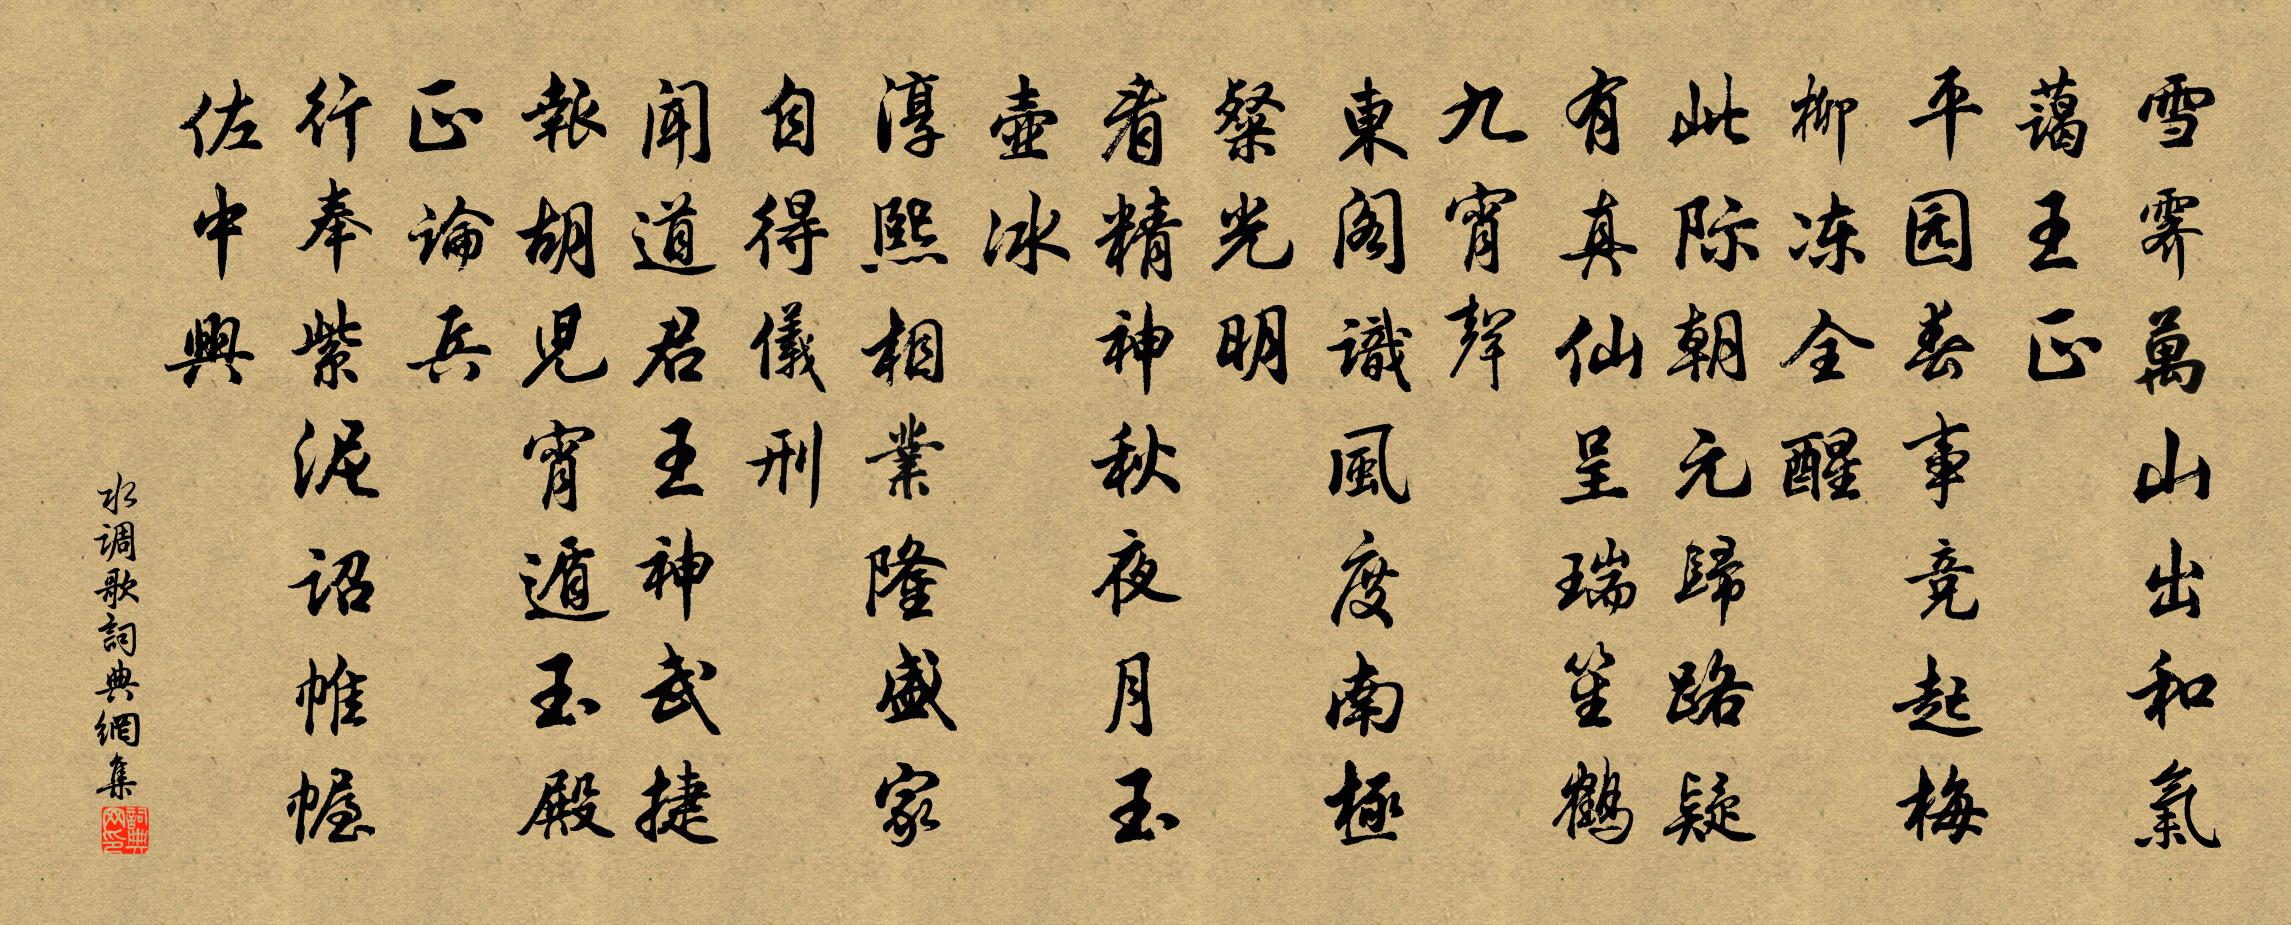 雪霽萬山出和氣
藹王正
平园春事竞起梅
柳冻全醒
此际朝元歸路疑
有真仙呈瑞笙鶴
九霄聲
東阁識風度南極
粲光明
看精神秋夜月玉
壺冰
淳熙相業隆盛家
自得儀刑
聞道君王神武捷
報胡児宵遁玉殿
正論兵
行奉紫泥诏帷幄
佐中興
水调歌詞典網集
詞典网印